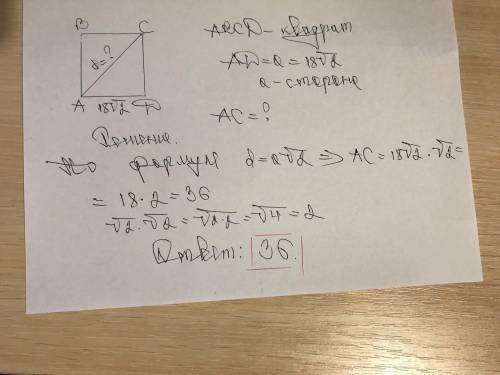 B C
d=?
A 18√2 D
ABCD - квадрат
AD = a = 18√2
a - сторона
AC = ?
Решение.
По формул d = a√2 => AC = 18√2 · √2 =
= 18 · 2 = 36
√2 · √2 = √2·2 = √4 = 2
Ответ: 36.